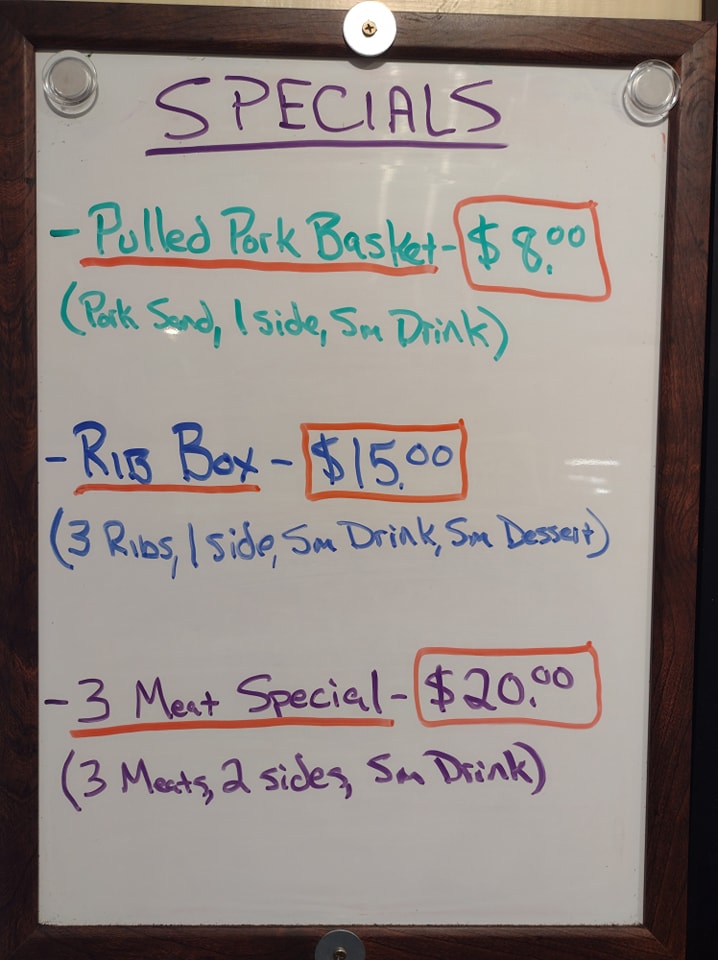 SPECIALS
- Pulled Pork Basket - $8.00
(Pork Sand, 1 side, Sm Drink)
- RIB Box - $15.00
(3 Ribs, 1 side, Sm Drink, Sm Dessert)
- 3 Meat Special - $20.00
(3 Meats, 2 sides, Sm Drink)